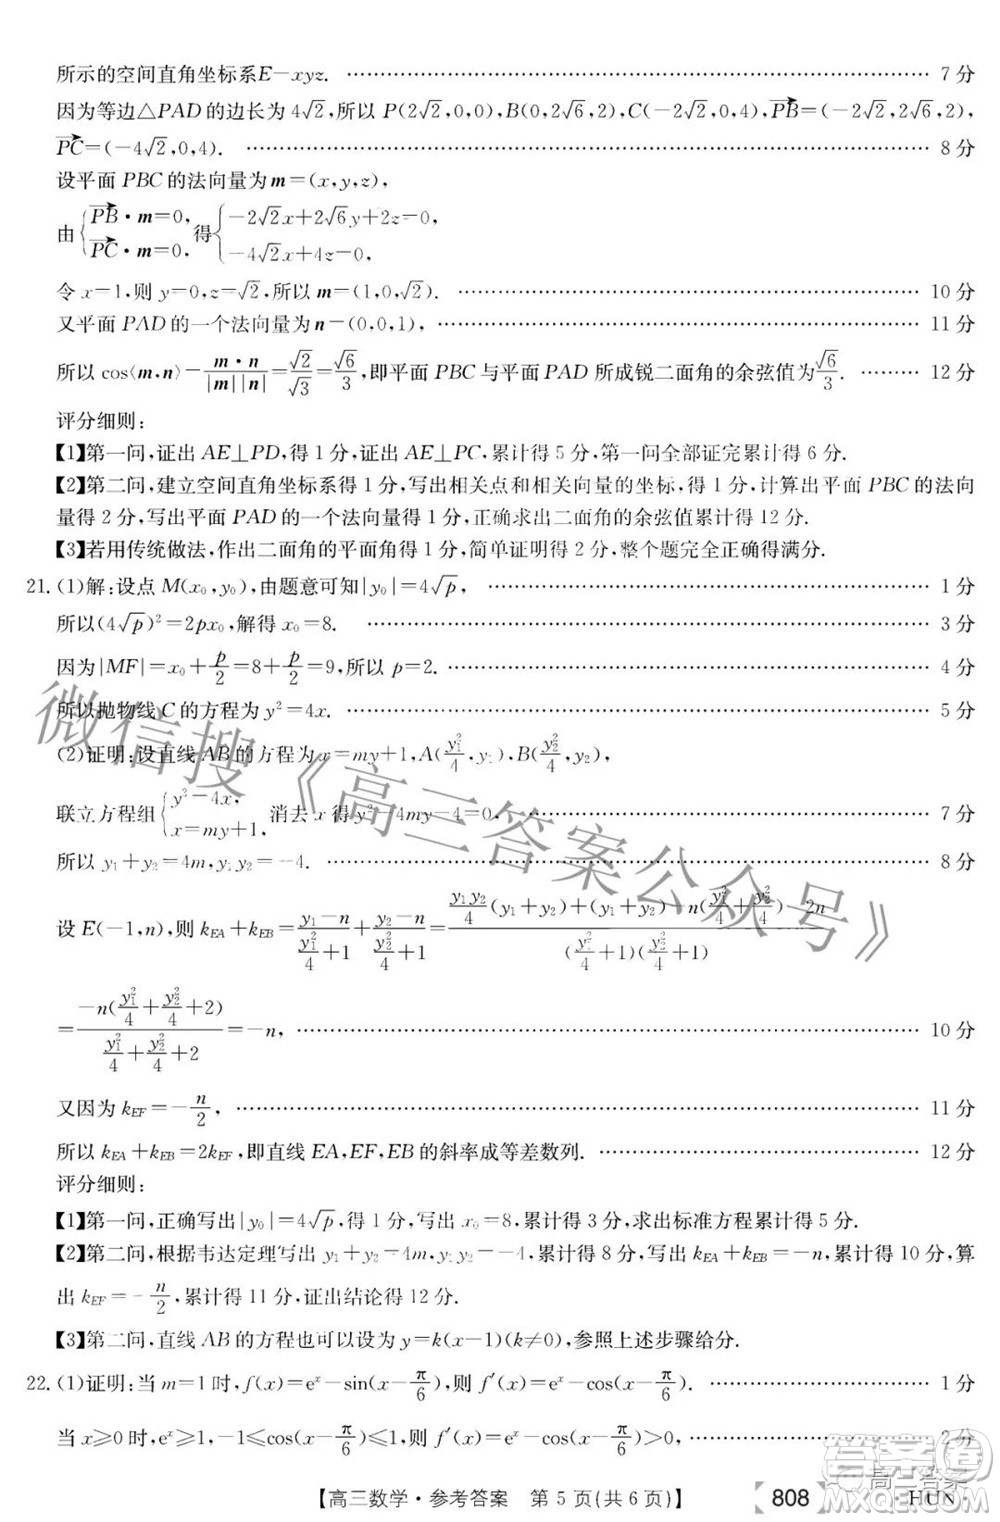 所示的空间直角坐标系E-xyz. ………… 7 分
因为等边△PAD的边长为 4√2,所以 P(2√2,0,0),B(0,2√6,2),C(-2√2,0,4),PB=(-2√2,2√6,2),
PC=(-4√2,0,4). ………… 8 分
设平面 PBC 的法向量为 m=(x,y,z),
由{PB·m=0, PC·m=0, 得{-2√2x+2√6y+2z=0, -4√2x+4z=0,
令 x=1,则 y=0,z=√2,所以 m=(1,0,√2). ………… 10 分
又平面 PAD 的一个法向量为 n=(0,0,1), ………… 11 分
所以 cos⟨m,n⟩=m·n/|m||n|=√2/√3=√6/3,即平面 PBC 与平面 PAD 所成锐二面角的余弦值为√6/3. ……… 12 分
评分细则:
【1】第一问,证出 AE⊥PD,得 1 分,证出 AE⊥PC,累计得 5 分,第一问全部证完累计得 6 分.
【2】第二问,建立空间直角坐标系得 1 分,写出相关点和相关向量的坐标,得 1 分,计算出平面 PBC 的法向
量得 2 分,写出平面 PAD 的一个法向量得 1 分,正确求出二面角的余弦值累计得 12 分.
【3】若用传统做法,作出二面角的平面角得 1 分,简单证明得 2 分,整个题完全正确得满分.
21. (1)解:设点 M(x₀,y₀),由题意可知|y₀|=4√p, ………… 1 分
所以(4√p)²=2px₀,解得 x₀=8. ………… 3 分
因为|MF|=x₀+p/2=8+p/2=9,所以 p=2. ………… 4 分
所以抛物线 C 的方程为 y²=4x. ………… 5 分
(2)证明:设直线 AB 的方程为 x=my+1,A(y₁²/4,y₁),B(y₂²/4,y₂),
联立方程组{y²=4x, x=my+1, 消去 x 得 y²-4my-4=0, ………… 7 分
所以 y₁+y₂=4m,y₁y₂=-4. ………… 8 分
设 E(-1,n),则 kEA+kEB=(y₁-n)/(y₁²/4+1)+(y₂-n)/(y₂²/4+1)=[y₁y₂/4(y₁+y₂)+(y₁+y₂)-n(y₁²/4+y₂²/4)-2n]/[(y₁²/4+1)(y₂²/4+1)]
=[-n(y₁²/4+y₂²/4+2)]/[y₁²/4+y₂²/4+2]=-n, ………… 10 分
又因为 kEF=-n/2, ………… 11 分
所以 kEA+kEB=2kEF,即直线 EA,EF,EB 的斜率成等差数列. ………… 12 分
评分细则:
【1】第一问,正确写出|y₀|=4√p,得 1 分,写出 x₀=8,累计得 3 分,求出标准方程累计得 5 分.
【2】第二问,根据韦达定理写出 y₁+y₂=4m,y₁y₂=-4,累计得 8 分,写出 kEA+kEB=-n,累计得 10 分,算
出 kEF=-n/2,累计得 11 分,证出结论得 12 分.
【3】第二问,直线 AB 的方程也可以设为 y=k(x-1)(k≠0),参照上述步骤给分.
22. (1)证明:当 m=1 时,f(x)=eˣ-sin(x-π/6),则 f′(x)=eˣ-cos(x-π/6). ………… 1 分
当 x≥0 时,eˣ≥1,-1≤cos(x-π/6)≤1,所以 f′(x)=eˣ-cos(x-π/6)>0, ………… 2 分
【高三数学·参考答案 第 5 页(共 6 页)】 808 ·HUN·
微信搜《高三答案公众号》